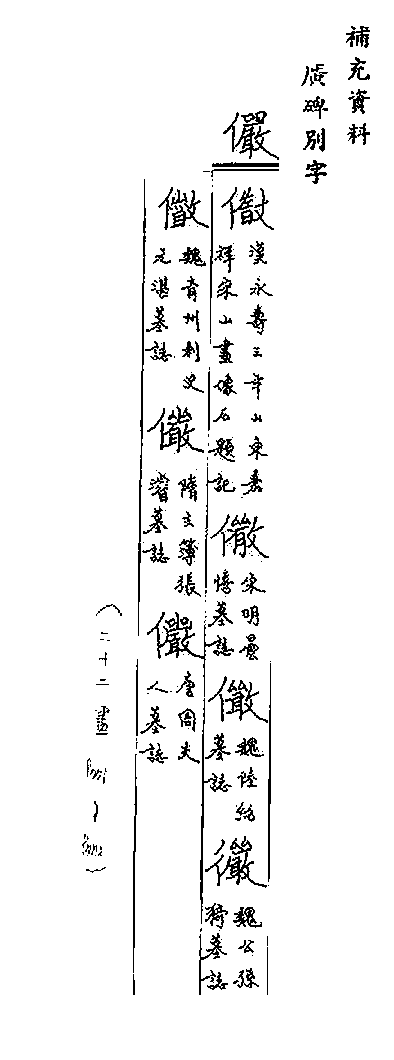 補充資料
廣碑別字
儼
漢永壽三年山東嘉
祥宋山畫像石題記
宋明曇
憘墓誌
魏陸紹
墓誌
魏公孫
猗墓誌
魏青州刺史
元湛墓誌
隋主簿張
濬墓誌
儼
唐周夫
人墓誌
(二十二畫